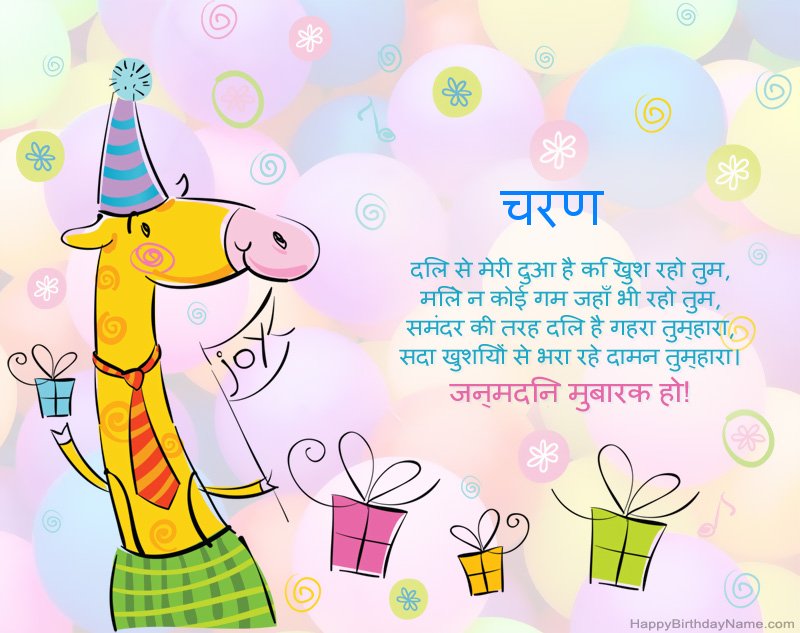 चरण
दलि से मेरी दुआ है कि खुश रहो तुम,
मलिे न कोई गम जहाँ भी रहो तुम,
समंदर की तरह दलि है गहरा तुम्हारा,
सदा खुशयिों से भरा रहे दामन तुम्हारा।
जन्मदनि मुबारक हो!
joy
HappyBirthdayName.com